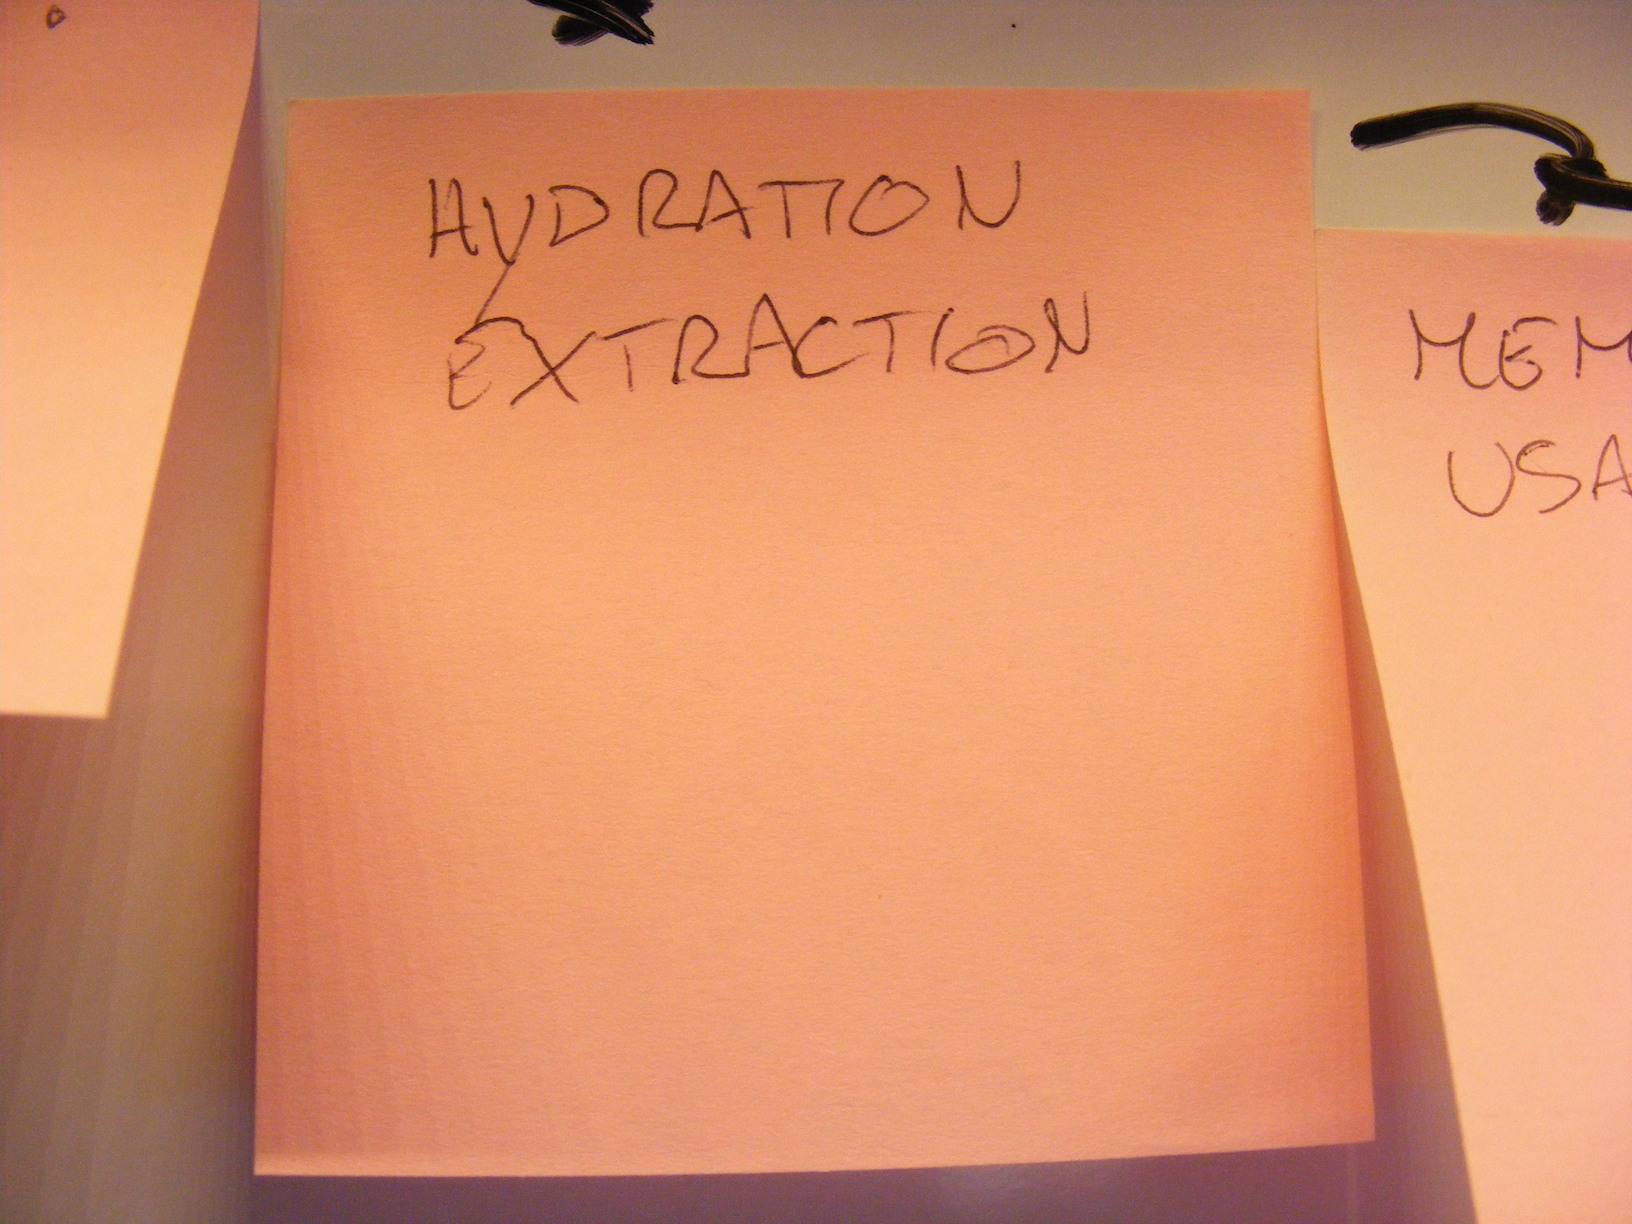 HYDRATION
EXTRACTION
MEM
USA